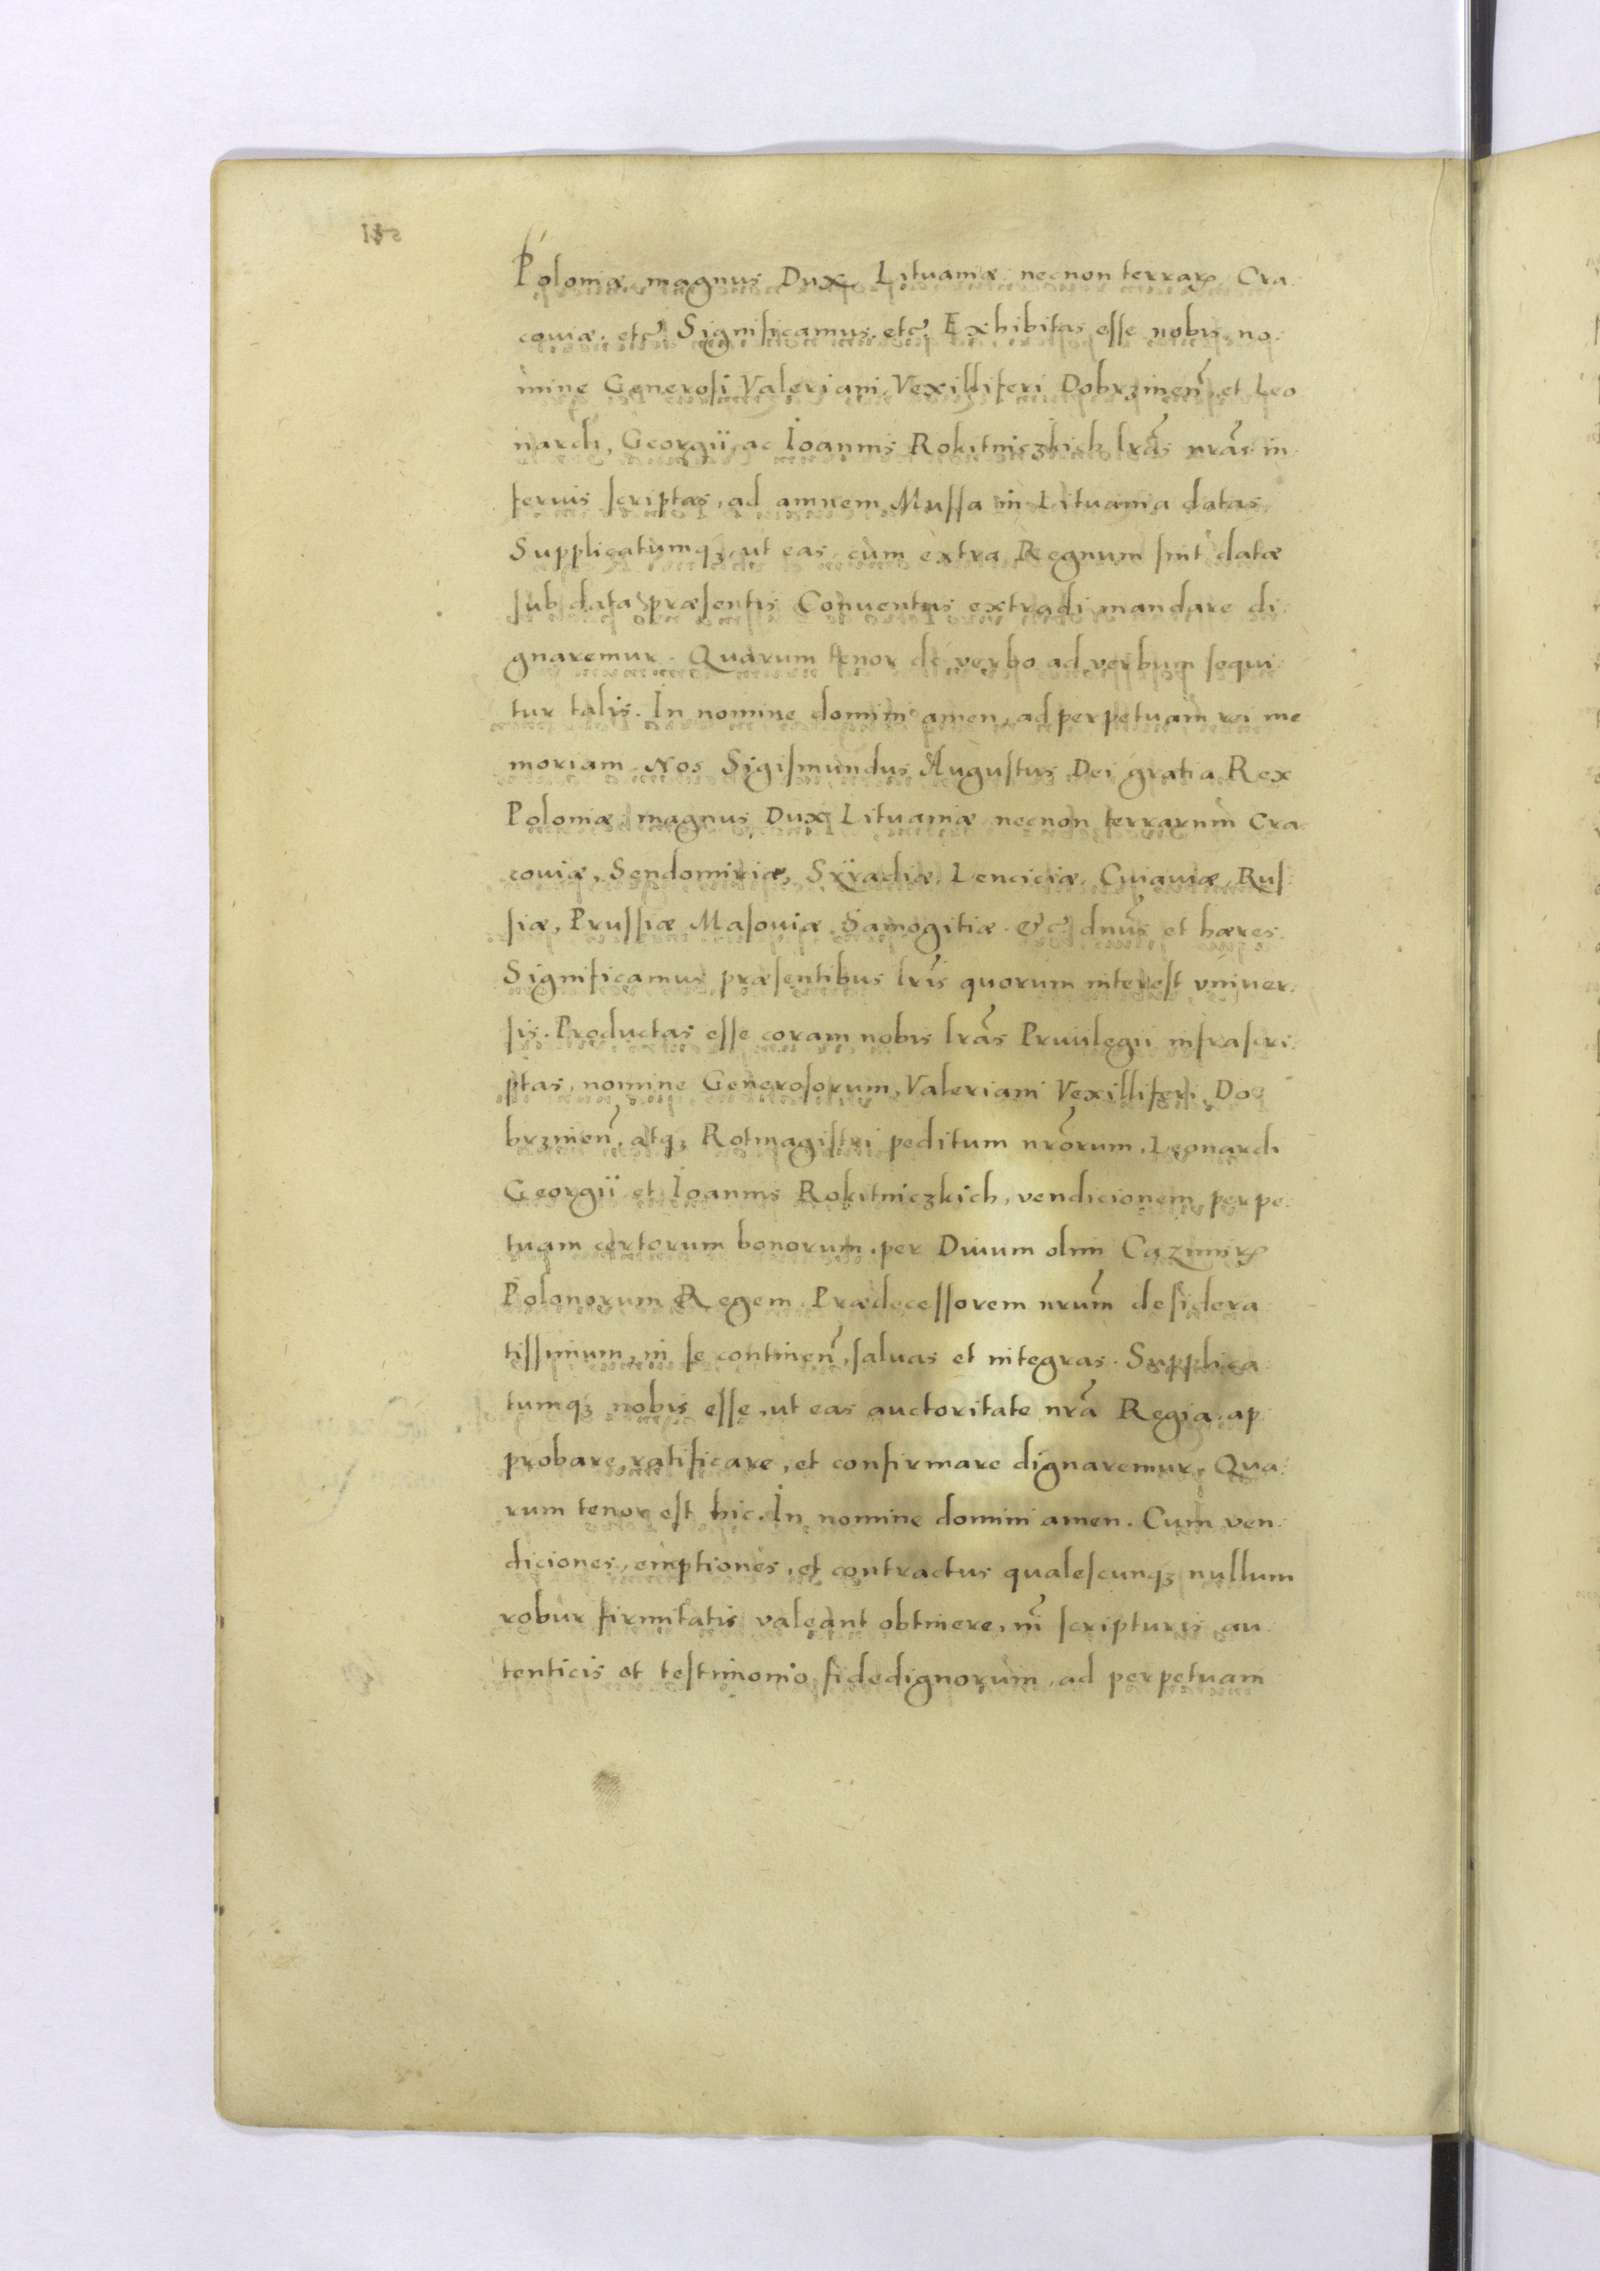 Poloniæ magnus Dux Lituaniæ necnon terrarꝝ Cra
couiæ. etc̃ Significamus. etc̃. Exhibitas esse nobis no
mine Generosi Valeriani Vexilliferi Dobrzinen̄ et Leo
nardi, Georgii, ac Ioannis Rokitniczkich lr̃as nr̃as in
ferius scriptas, ad amnem Mussa in Lituania datas
Supplicatumqꝫ, ut eas, cum extra Regnum sint datæ
sub data præsentis Conuentus extradi mandare di
gnaremur. Quarum tenor de verbo ad verbum sequi
tur talis. In nomine domini amen, ad perpetuam rei me
moriam. Nos Sigismundus Augustus Dei gratia Rex
Poloniæ magnus Dux Lituaniæ necnon terrarum Cra
couiæ, Sendomiriæ, Syradiæ, Lenciciæ, Cuiauiæ, Rus
siæ, Prussiæ Masouiæ Samogitiæ &c̃ dnūs et hæres.
Significamus præsentibus lr̃is quorum interest vniuer
sis. Productas esse coram nobis lr̃as Priuilegii infrascri
ptas, nomine Generosorum, Valeriani Vexilliferi Do
brzinen̄, atqꝫ Rotmagistri peditum nr̃orum, Leonardi
Georgii et Ioannis Rokitniczkich, vendicionem perpe
tuam certorum bonorum, per Diuum olim Cazimirꝝ
Polonorum Regem Prædecessorem nrūm desidera
tissimum, in se continen̄, saluas et integras. Supplica
tumqꝫ nobis esse, ut eas auctoritate nr̃a Regia, ap
probare, ratificare, et confirmare dignaremur. Qua
rum tenor est hic. In nomine domini amen. Cum ven
diciones, emptiones, et contractus qualescunqꝫ nullum
robur firmitatis valeant obtinere, nĩ scripturis au
tenticis et testimonio fidedignorum, ad perpetuam